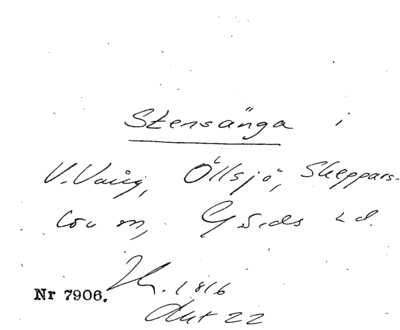 Stensänga i
V. Vång, Öllsjö, Skeppars-
löv sn, Gärds hd.
Nr 7906.
1816
Akt 22